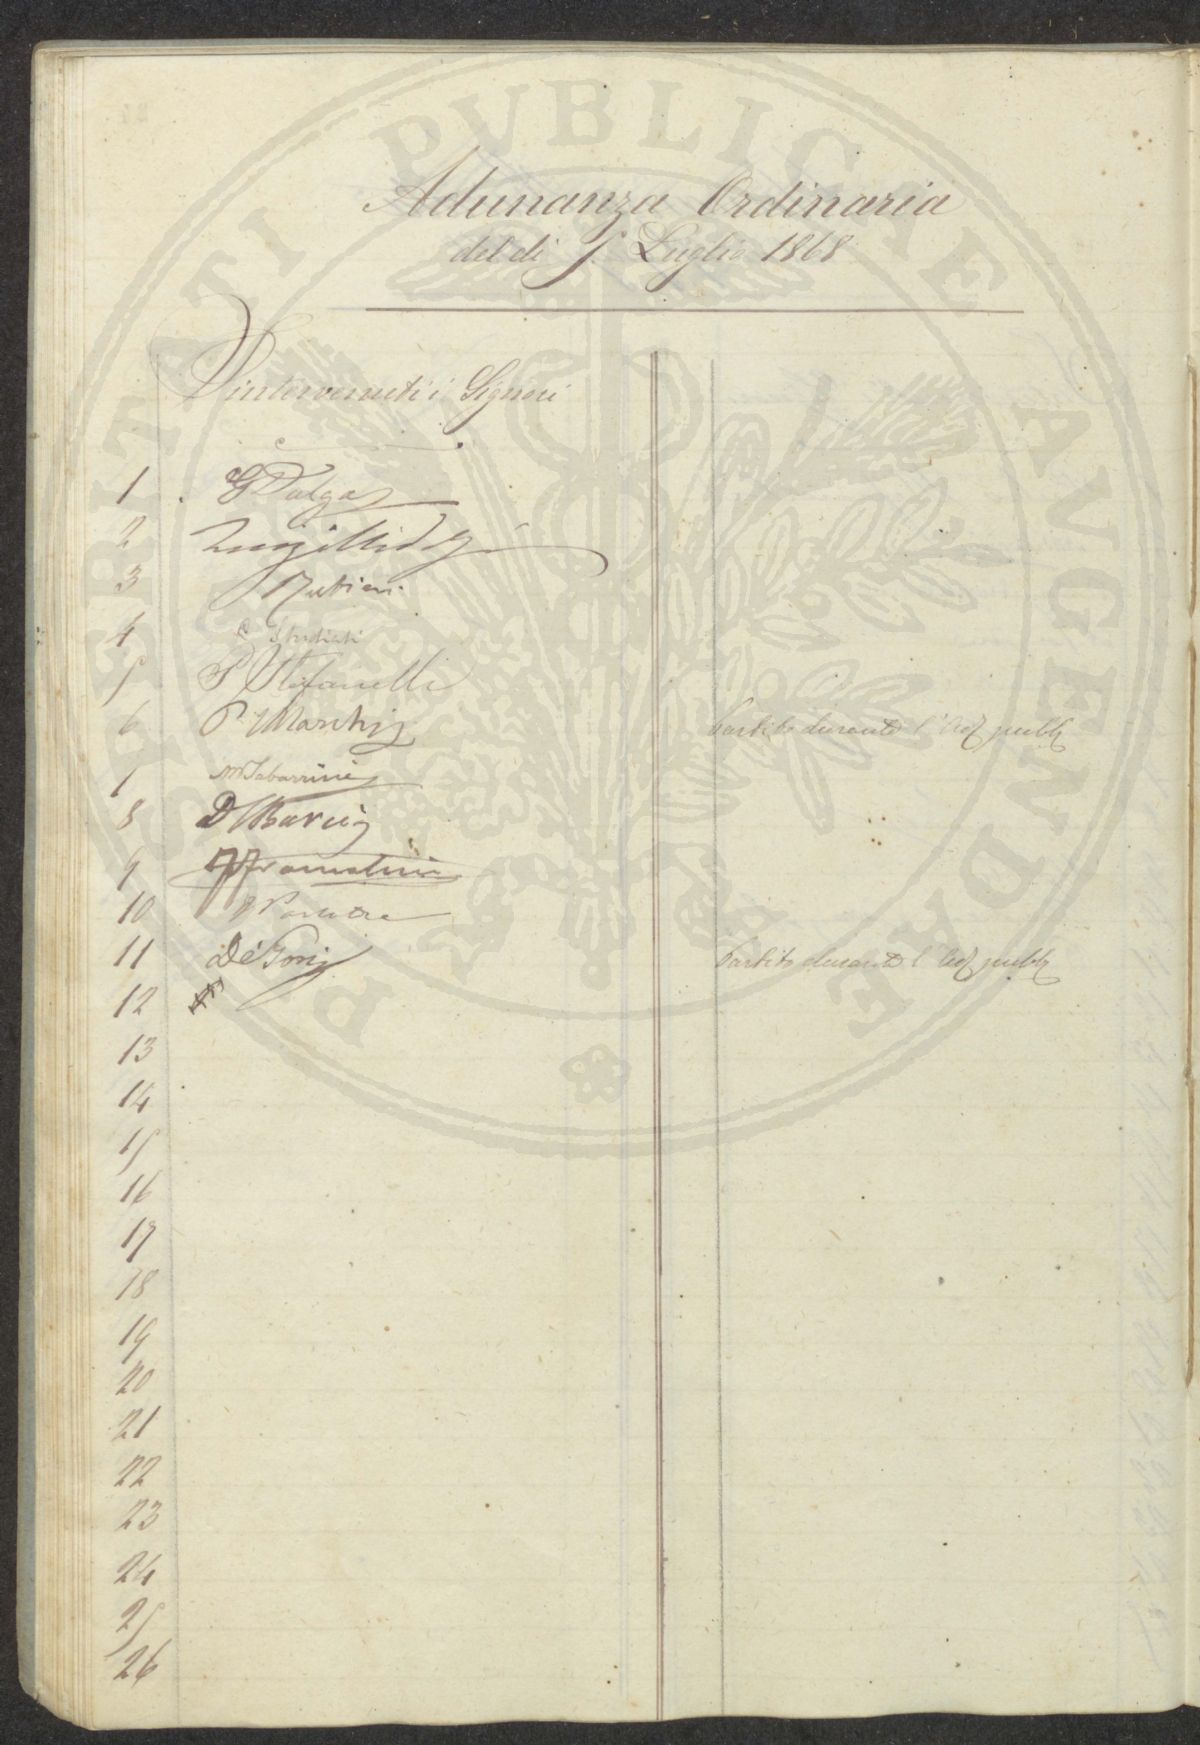 PROSPERITATI PVBLICAE AVGENDAE
Adunanza Ordinaria
del dì 5 Luglio 1868
intervenuti i Signori
1 G Dalgas
2 Luigi
3 Rubieri
4 C Studiati
5 P Stefanelli
6 P. Marchi Partito durante l'Ad publ
7 M Tabarrini
8 D Barui
9
10
11 De Gori Partito durante l'Ad publ
12
13
14
15
16
17
18
19
20
21
22
23
24
25
26